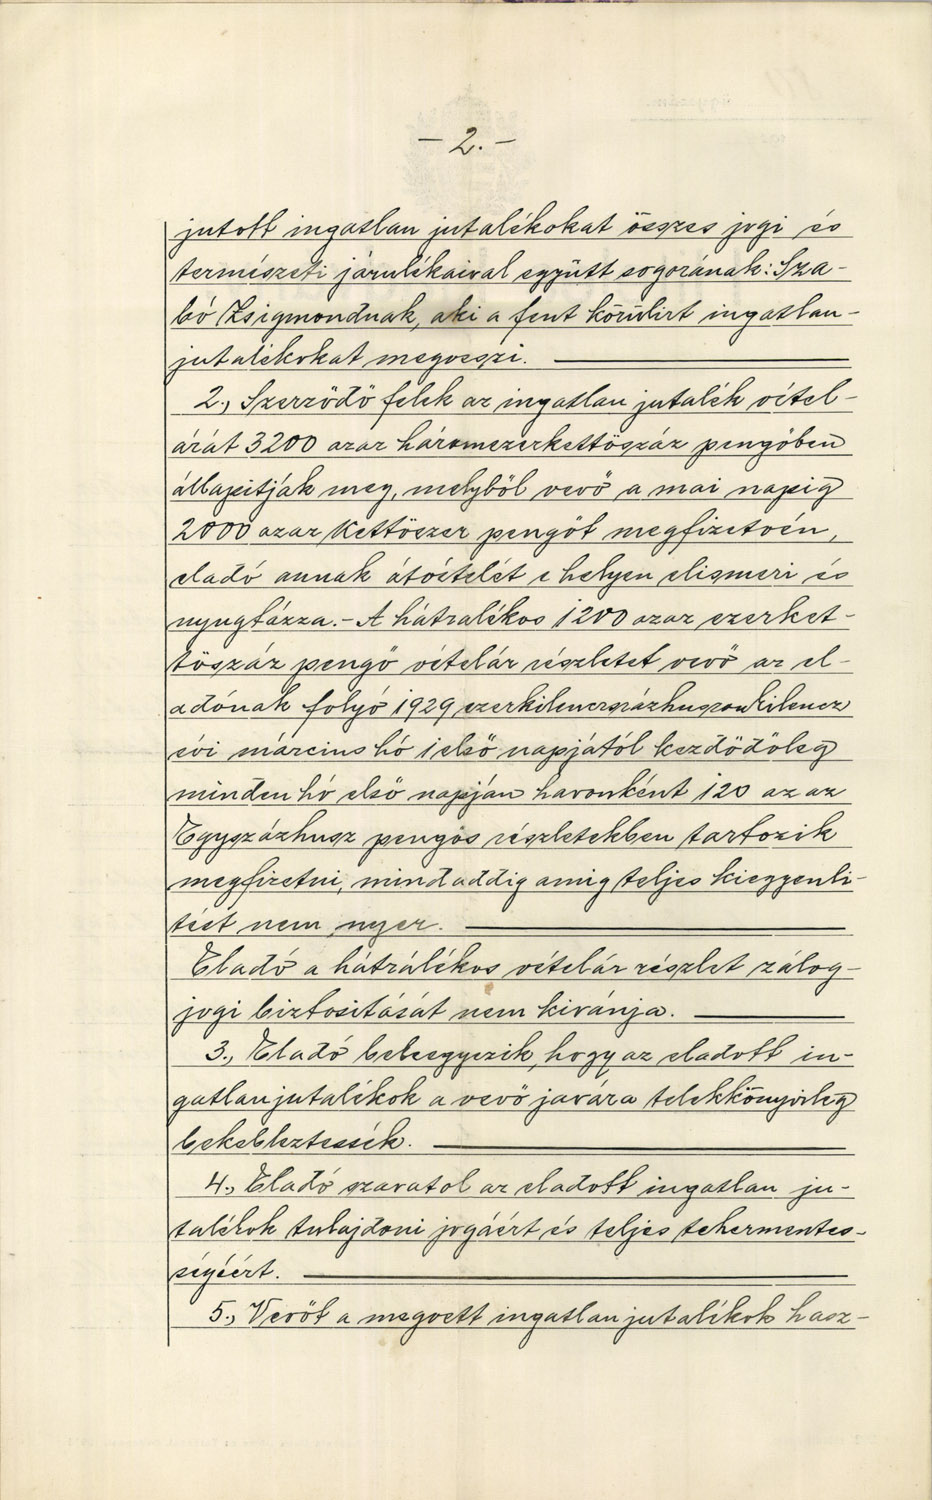 - 2. -
jutott ingatlan jutalékokat összes jogi és
természeti járulékaival együtt sogorának: Sza-
bó Zsigmondnak, aki a fent körülirt ingatlan-
jutalékokat megveszi.
2., Szerződő felek az ingatlan jutalék vétel-
árát 3200 azaz háromezerkettőszáz pengőben
állapitják meg, melyből vevő a mai napig
2000 azaz Kettőezer pengőt megfizetvén,
eladó annak átvételét e helyen elismeri és
nyugtázza. - A hátralékos 1200 azaz ezerket-
tőszáz pengő vételár részletet vevő az el-
adónak folyó 1929 ezerkilencszázhuszonkilencz
évi március hó 1 első napjától kezdődőleg
minden hó első napján havonként 120 az az
Egyszázhusz pengős részletekben tartozik
megfizetni, mindaddig amig teljes kiegyenli-
tést nem nyer.
Eladó a hátrálékos vételár részlet zálog-
jogi biztositását nem kivánja.
3., Eladó beleegyezik, hogy az eladott in-
gatlanjutalékok a vevő javára telekkönyvileg
bekebleztessék.
4., Eladó szavatol az eladott ingatlan ju-
talékok tulajdoni jogáért és teljes tehermentes-
ségéért.
5., Vevőt a megvett ingatlanjutalékok hasz-